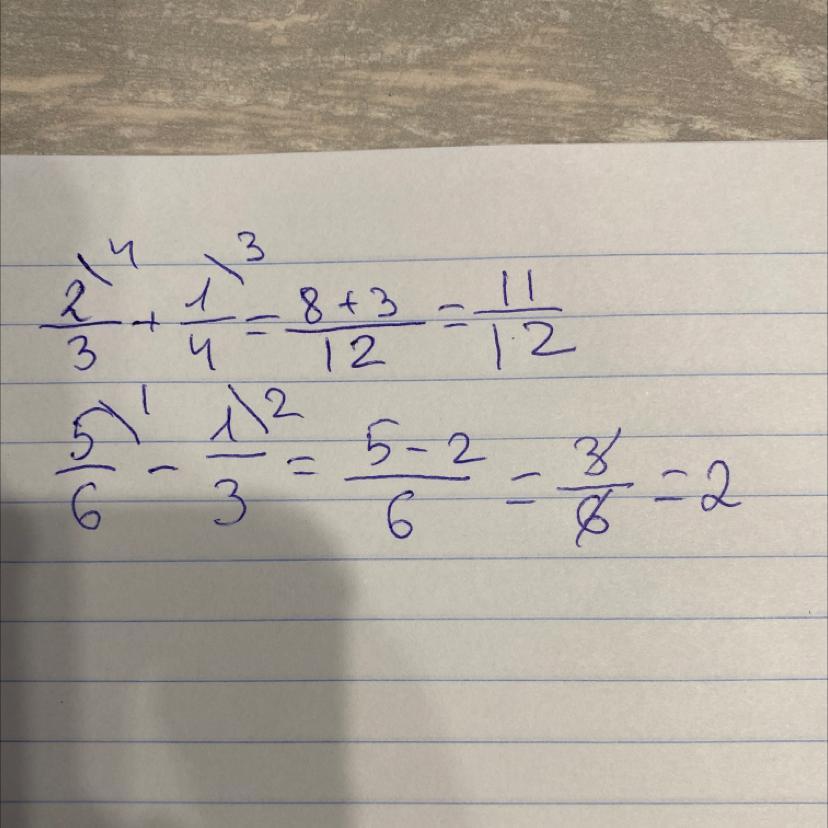 2\4/3 + 1\3/4 = 8+3/12 = 11/12
5\1/6 - 1\2/3 = 5-2/6 = 3/6 = 2